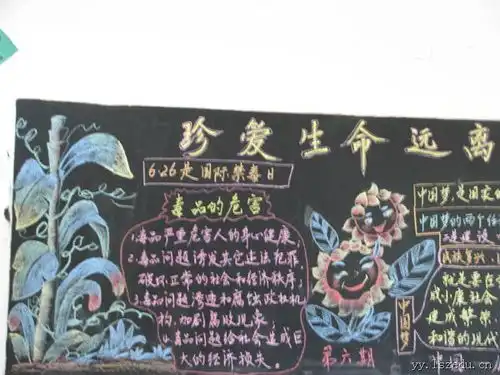 珍爱生命远离
6·26是国际禁毒日
毒品的危害
1、毒品严重危害人的身心健康。
2、毒品问题诱发其它违法犯罪,
破坏正常的社会和经济秩序。
3、毒品问题渗透和腐蚀政权机
构,加剧腐败现象。
4、毒品问题给社会造成巨
大的经济损失。
第六期
中国梦,是国家
中国梦的两个
民族复兴
中国梦
就是要在
成小康社会
建成繁荣
和谐的现代
中国
yy.lszedu.cn